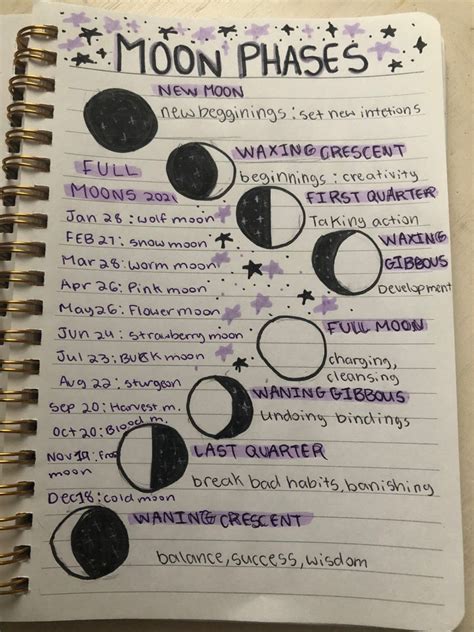 MOON PHASES
NEW MOON
new begginings : set new intetions
WAXING CRESCENT
beginnings : creativity
FIRST QUARTER
Taking action
WAXING
GIBBOUS
Development
FULL MOON
charging,
cleansing
WANING GIBBOUS
undoing bindings
LAST QUARTER
break bad habits, banishing
WANING CRESCENT
balance, success, wisdom
FULL
MOONS 2021
Jan 28 : wolf moon
FEB 27 : snow moon
Mar 28 : worm moon
Apr 26 : Pink moon
May 26 : Flower moon
Jun 24 : strawberry moon
Jul 23 : Buck moon
Aug 22 : sturgeon
Sep 20 : Harvest m.
Oct 20 : Blood m.
Nov 19 :
moon
Dec 18 : cold moon